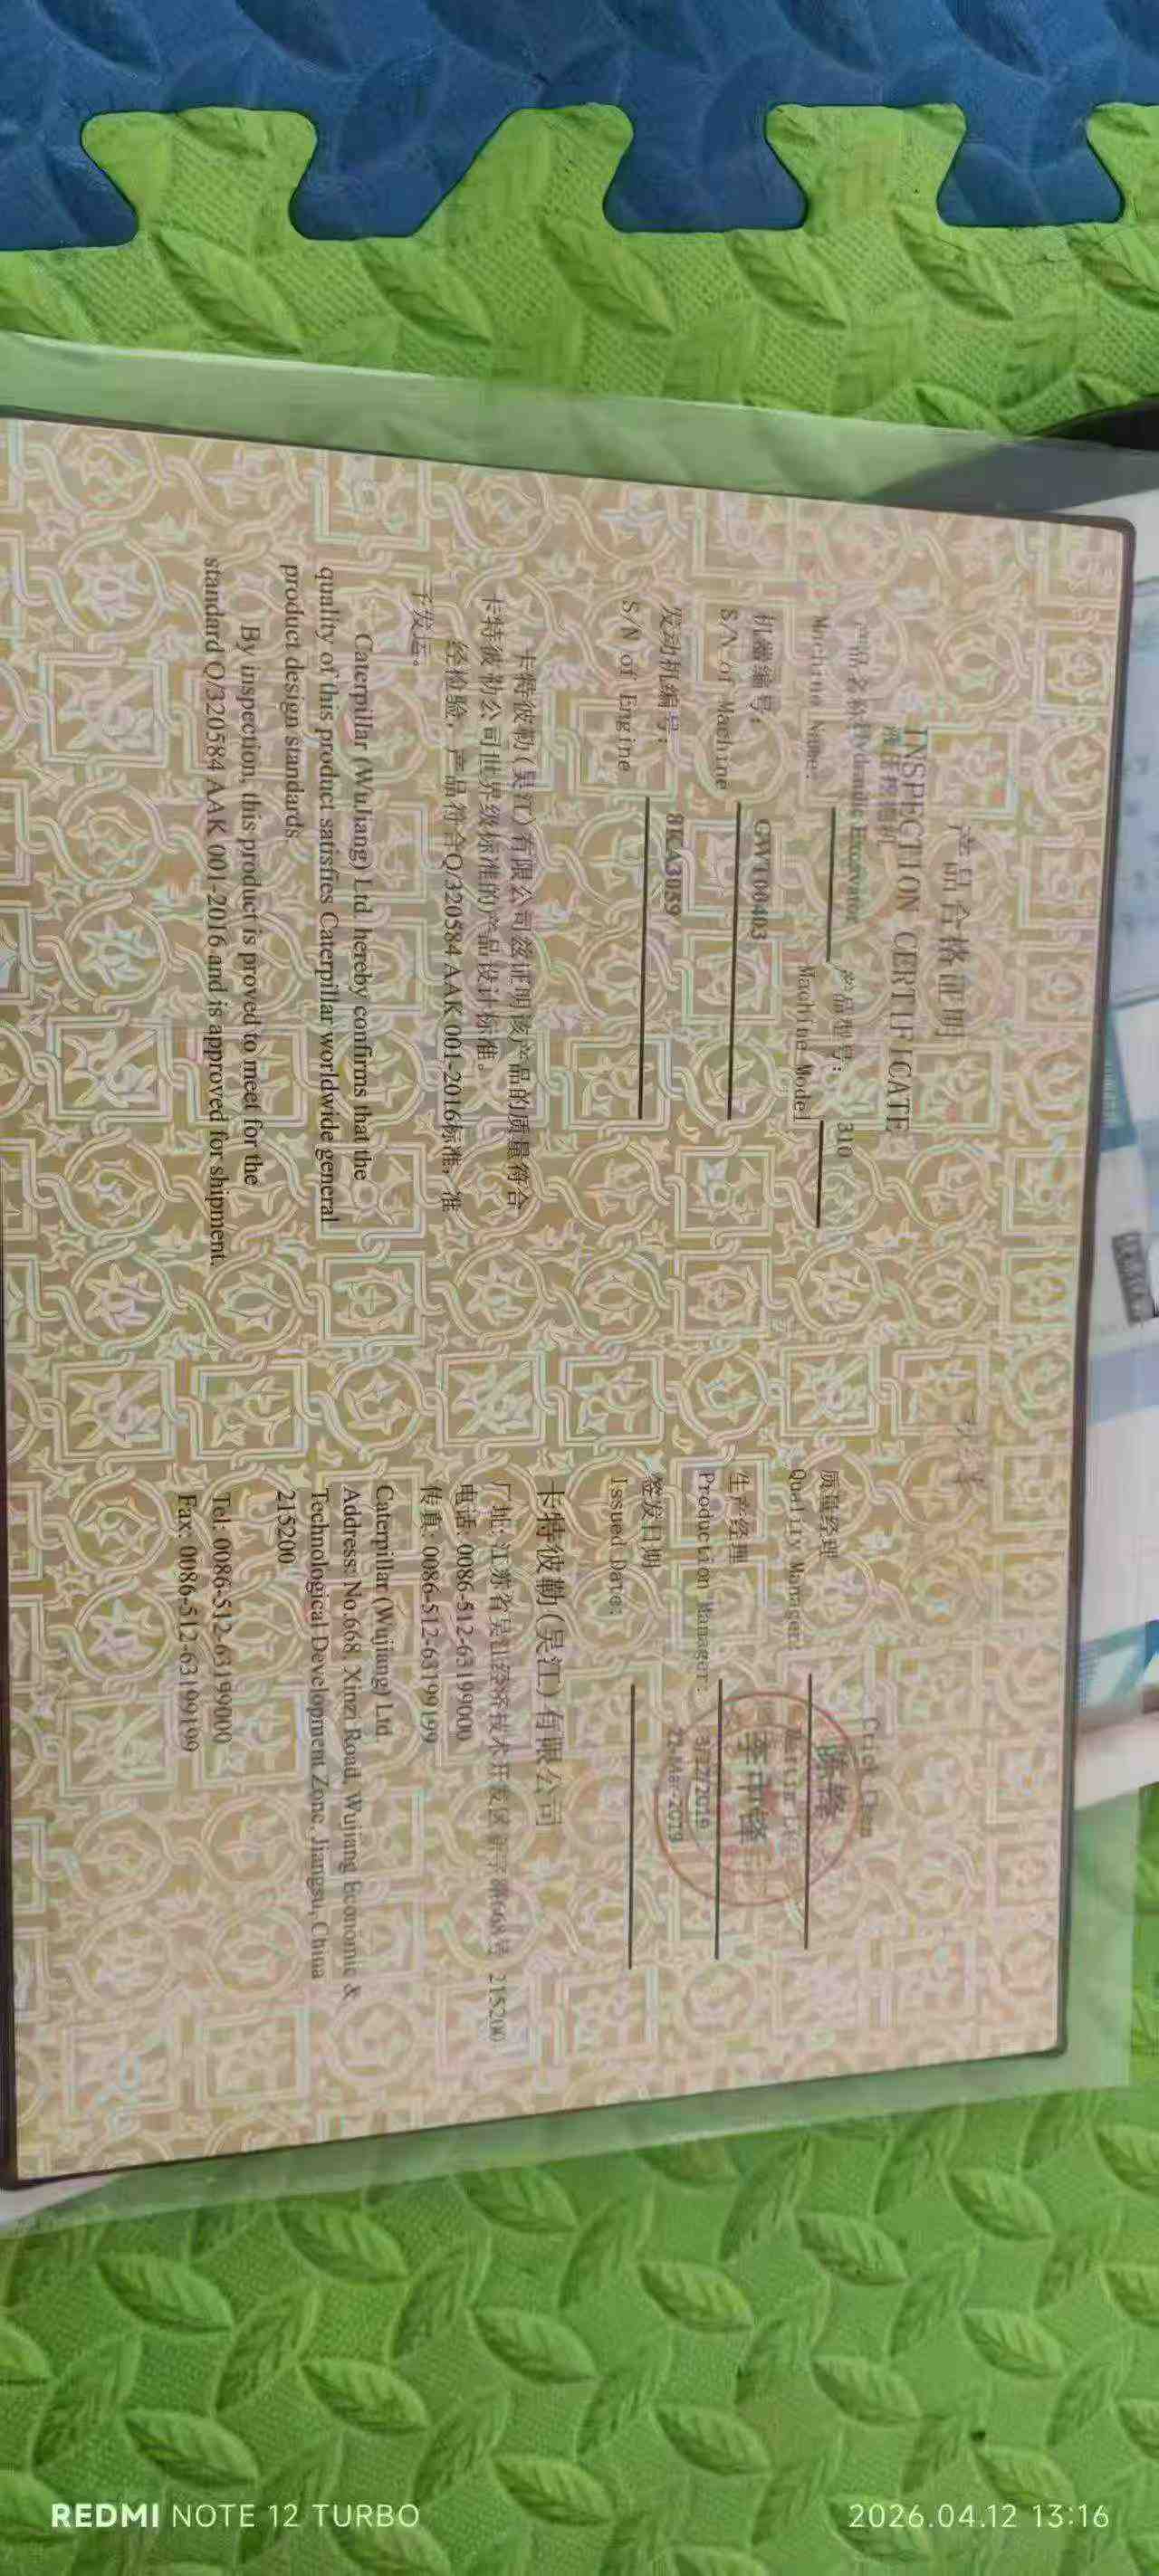 产品合格证明
INSPECTION CERTIFICATE
液压挖掘机
产品名称: Hydraulic Excavator 产品型号: 310
Machine Name: Machine Model
机器编号: GWT00403
S/N of Machine
发动机编号: 8KA3059
S/N of Engine
卡特彼勒(吴江)有限公司兹证明该产品的质量符合
卡特彼勒公司世界级标准的产品设计标准。
经检验,产品符合Q/320584 AAK 001-2016标准,准
予发运。
Caterpillar (WuJiang) Ltd. hereby confirms that the
quality of this product satisfies Caterpillar worldwide general
product design standards.
By inspection, this product is proved to meet for the
standard Q/320584 AAK 001-2016 and is approved for shipment.
Chen
质量经理
Quality Manager:
生产经理
Production Manager:
签发日期
Issued Date:
卡特彼勒(吴江)有限公司
厂址: 江苏省吴江经济技术开发区 668号 215200
电话: 0086-512-63199000
传真: 0086-512-63199199
Caterpillar (Wujiang) Ltd.
Address: No.668, Xinzi Road, Wujiang Economic &
Technological Development Zone, Jiangsu, China
215200
Tel: 0086-512-63199000
Fax: 0086-512-63199199
REDMI NOTE 12 TURBO
2026.04.12 13:16